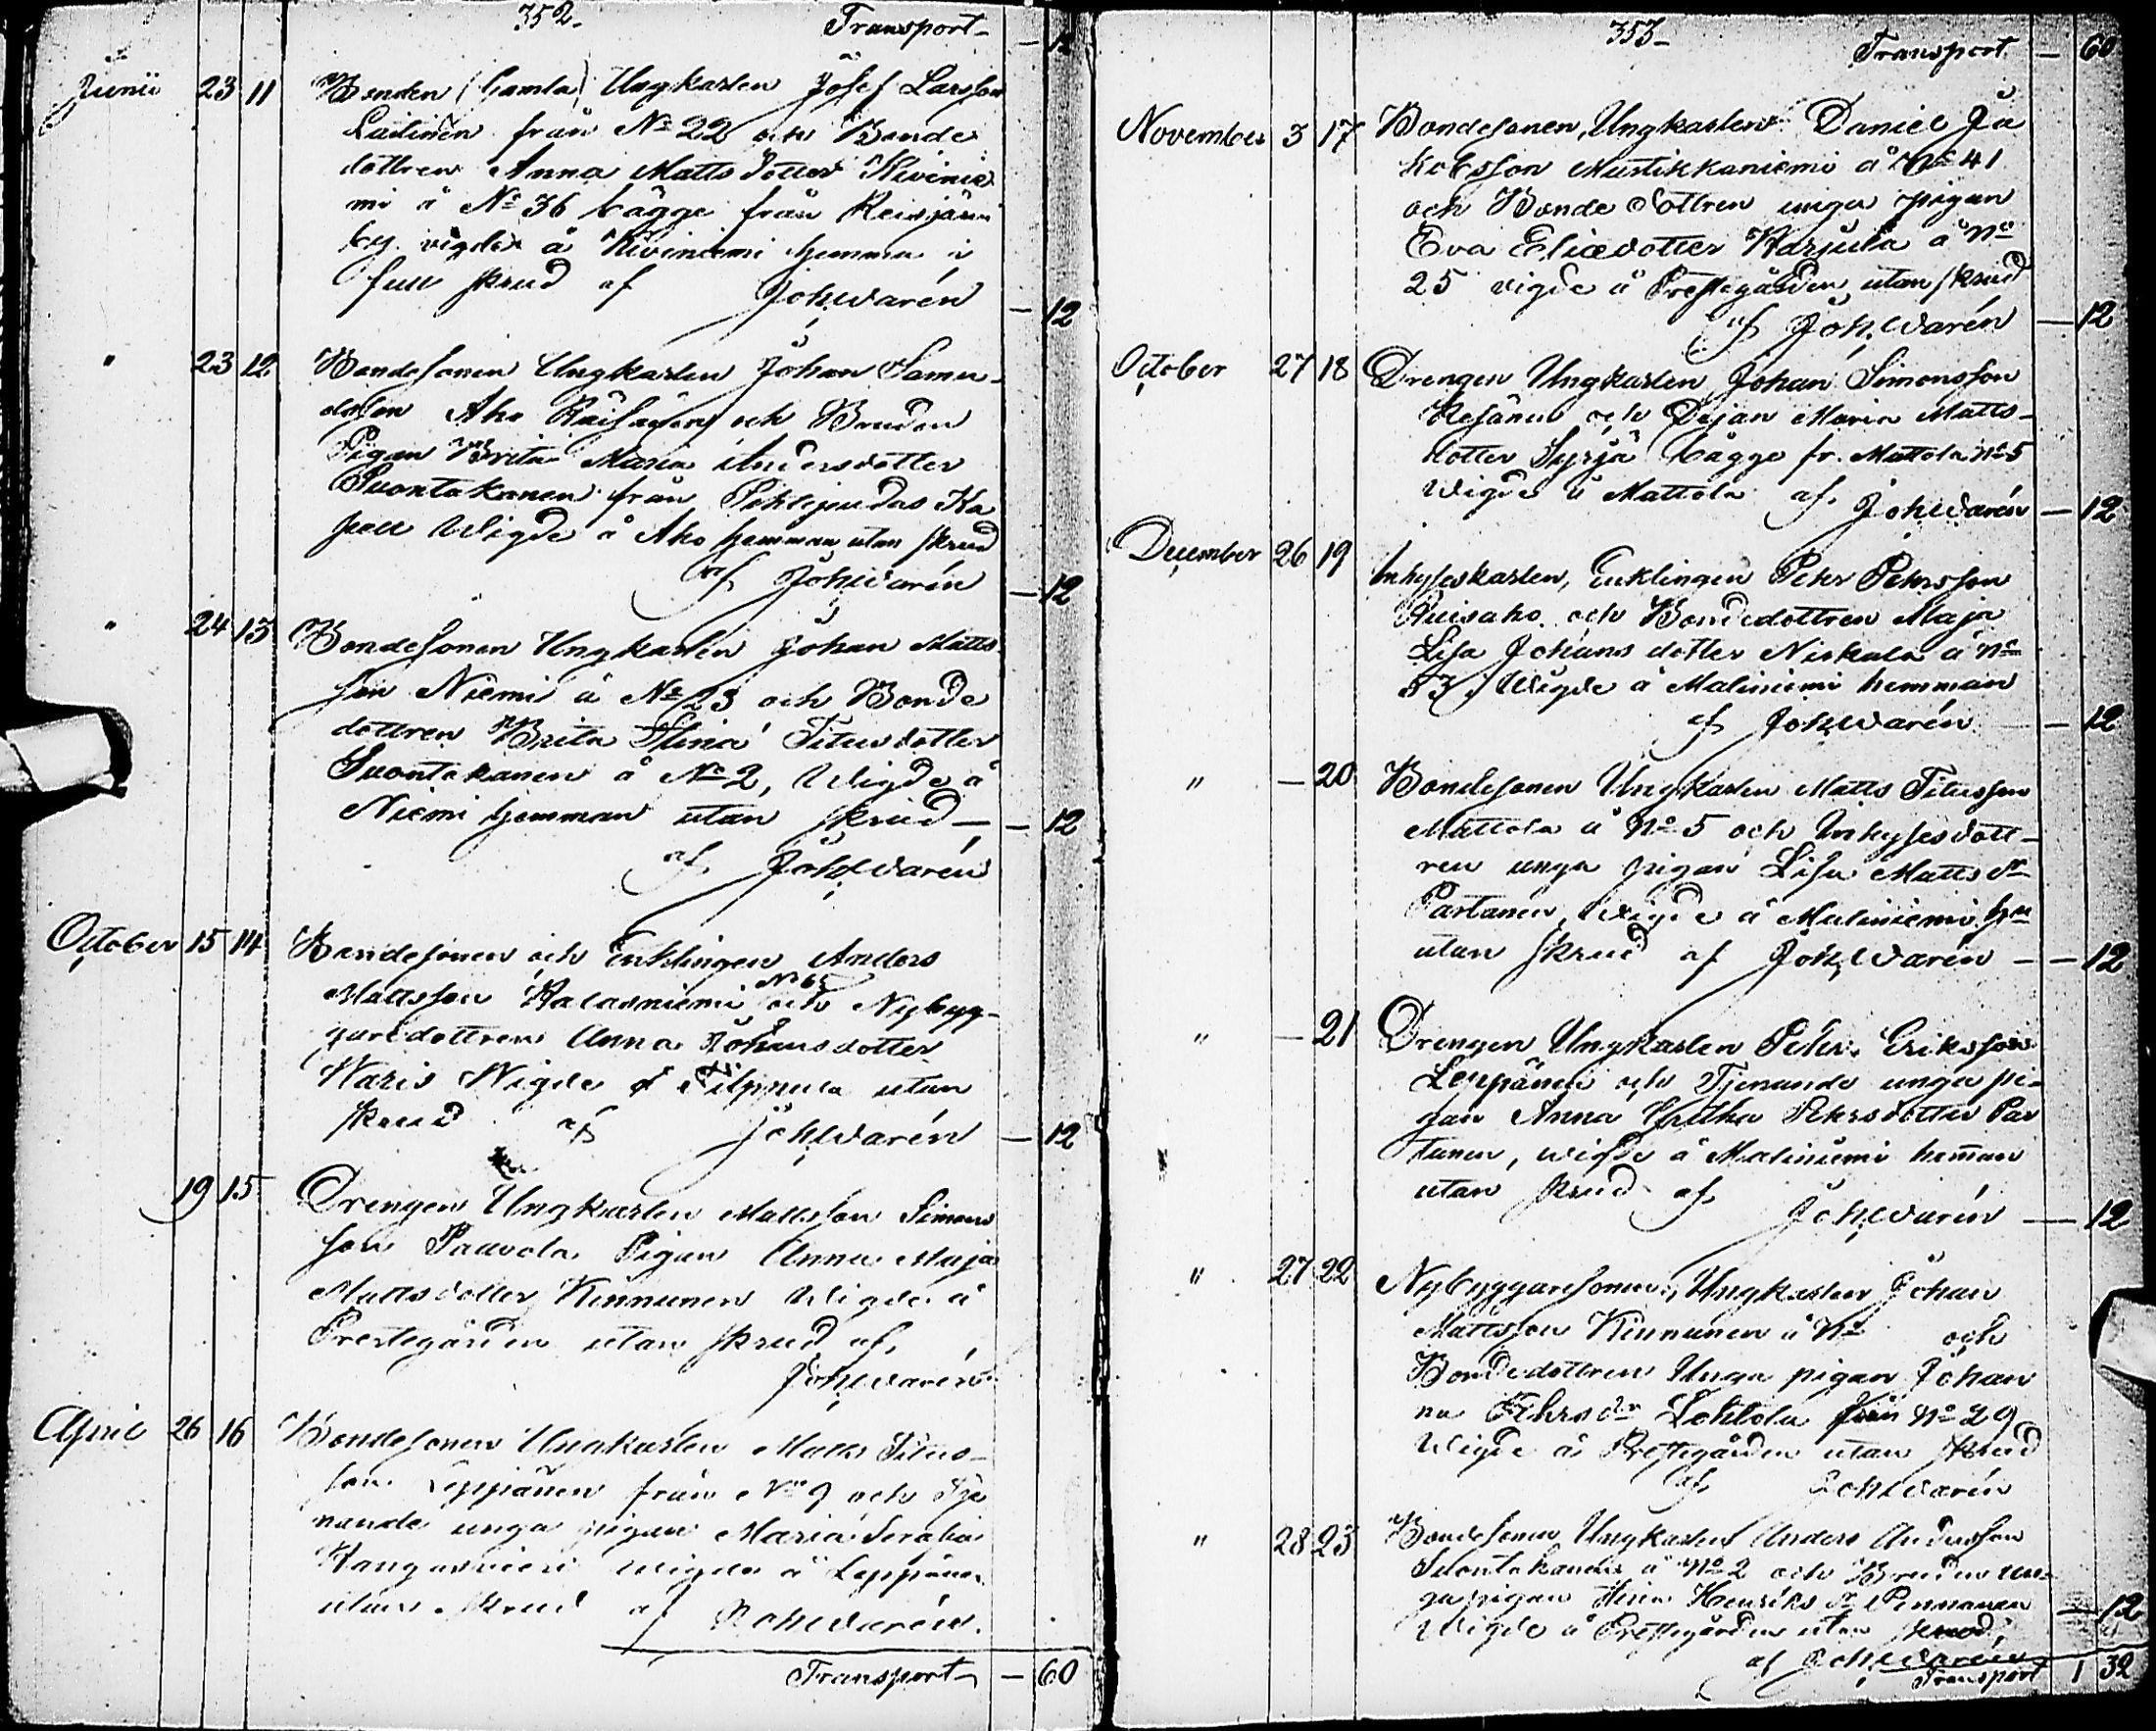 352.
Transport — 12
Junii 23 11 Bonden (Gamla) Ungkarlen Josef Larsson
Laitinen från No 22 och Bonde
dottren Anna Matts dotter Kivinie
mi å No 36 bägge från Reisjärvi
by. vigde å Kiviniemi hemma i
full skrud af Joh. Warén — 12
" 23 12 Bondesonen Ungkarlen Johan Samu-
elsson Aho Räisänen och Bruden
Pigan Brita Maria Andersdotter
Suontakanen från Pihtipudas Ka
pell Wigde å Aho hemman utan skrud
af Joh Warén — 12
" 24 13 Bondesonen Ungkarlen Johan Matts
son Niemi å No 23 och Bonde
dottren Brita Stina Titusdotter
Suontakanen å No 2, Wigde å
Niemi hemman utan skrud — 12
af Joh Warén
October 15 14 Bondesonen och Enklingen Anders
Mattsson Kalaniemi No 65 och Nybyg-
garedottren Anna Johansdotter
Waris Wigde å Tilppula utan
skrud af Joh Warén — 12
19 15 Drengen Ungkarlen Mattsson Simons
son Paavola Pigan Anna Maja
Mattsdotter Kinnunen Wigde å
Prestegården utan skrud af
Joh Warén
April 26 16 Bondesonen Ungkarlen Matts Titus-
son Leppänen från No 9 och Tje
nande unga pigan Maria Serafia
Kangasnieni Wigde å Leppänen
utan skrud af Joh Warén.
Transport — 60
353
Transport — 60
November 3 17 Bondesonen, Ungkarlen Daniel Ja
kobsson Mustikkaniemi å No 41
och Bonde dottren unga pigan
Eva Eliædotter Harjula å No
25 vigde å Prestegården utan skrud
af Joh. Warén — 12
October 27 18 Drengen Ungkarlen Johan Simonsson
Kesänen och Dejan Maria Matts-
dotter Syrjä bägge fr. Mattola No 5
Wigde å Mattola af Joh Warén — 12
December 26 19 Inhyseskarlen, Enklingen Pehr Pehrsson
Ruisaho och Bondedottren Maja
Lisa Johans dotter Niskala å No
53. Wigde å Maliniemi hemman
af Joh Warén — 12
" — 20 Bondesonen Ungkarlen Matts Titusson
Mattola å No 5 och Inhysesdott-
ren unga pigan Lisa Matts dr
Partanen, Wigde å Maliniemi hn
utan skrud af Joh, Warén — 12
" — 21 Drengen Ungkarlen Pehr Eriksson
Leppänen och Tjenande unga pi-
gan Anna Gretha Pehrsdotter Par
tanen, wigde å Maliniemi hem̄an
utan skrud af Joh, Warén — 12
" 27 22 Nybyggaresonen, Ungkarlen Johan
Mattsson Kinnunen å No och
Bondedottren Unga pigan Johan
na Pehrs dr Lehtola från No 29
Wigde å Prestegården utan skrud
af Joh Warén
" 28 23 Bondesonen Ungkarlen Anders Andersson
Suontakanen å No 2 och Bruden un-
ga pigan Stina Henriks dr Pennanen — 12
Wigde å Prestegården utan skrud,
af Joh, Warén
Transport 1 32